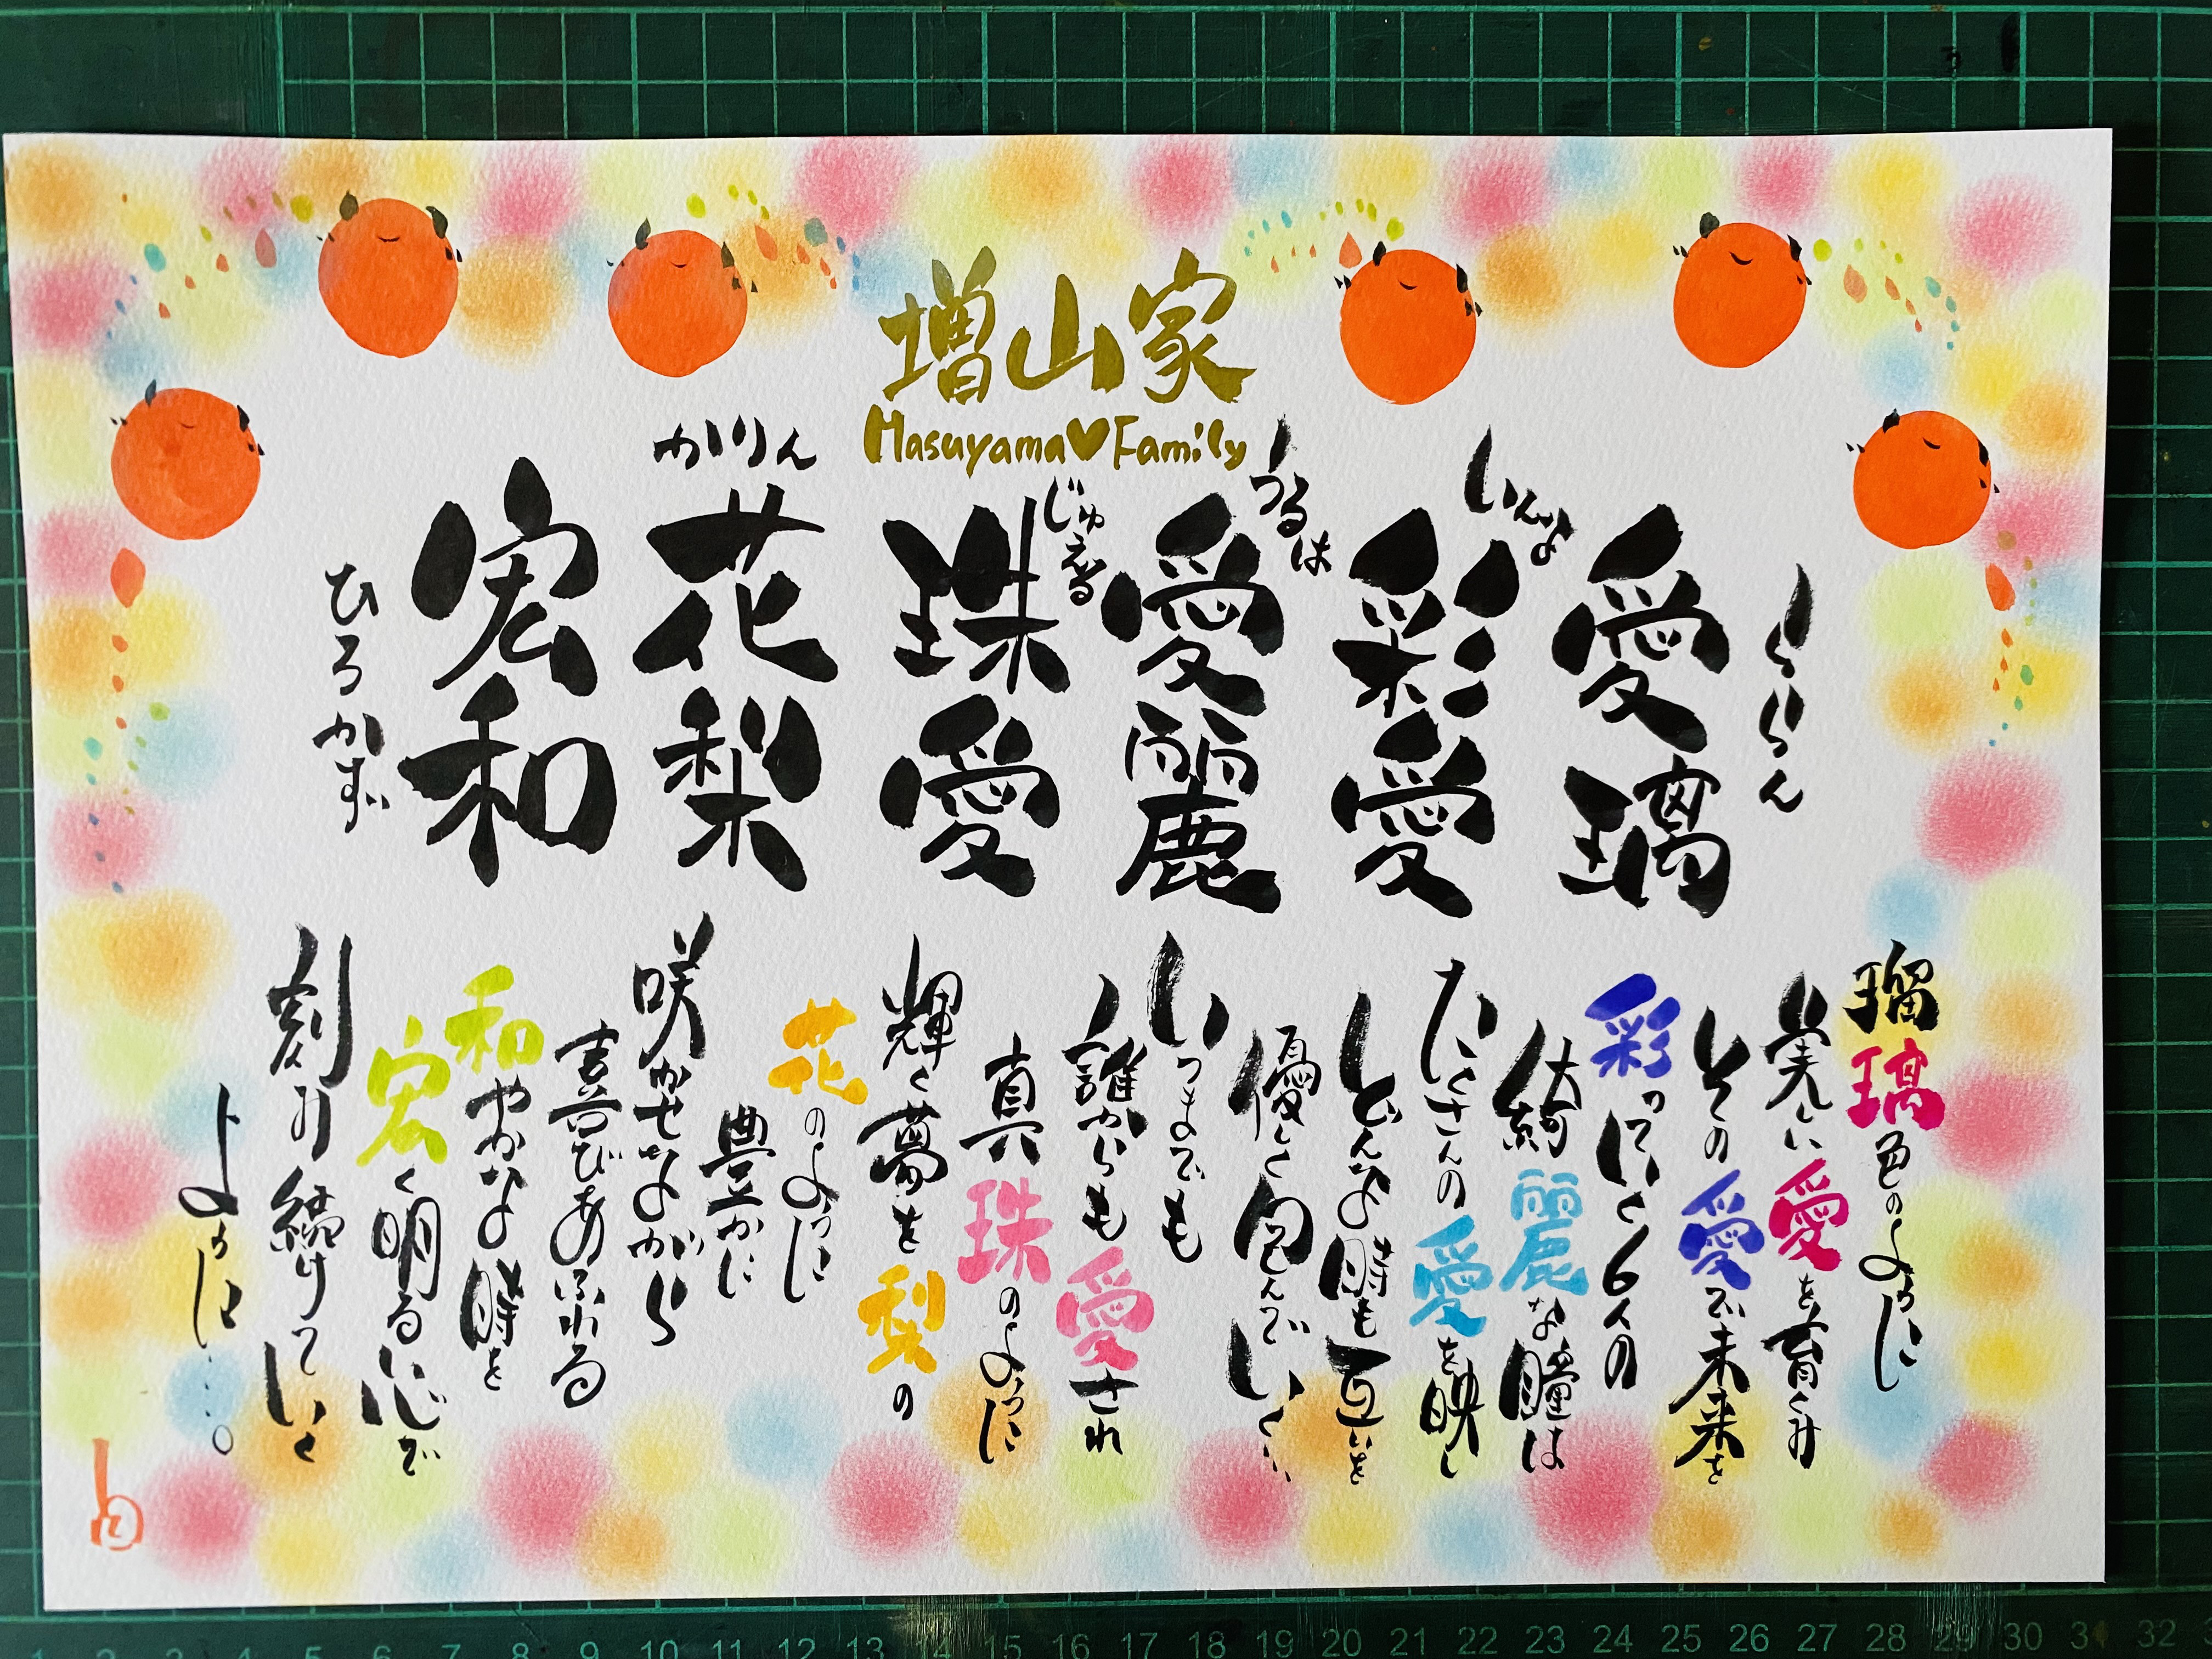 増山家
Masuyama♥Family
愛璃
彩愛
うるは
愛麗
じゅえる
珠愛
かりん
花梨
ひろかず
宏和
瑠璃色のように
美しい愛を育くみ
その愛で未来を
彩っていく6人の
綺麗な瞳は
たくさんの愛を映し
どんな時も互いを
優しく包んでいく…
いつまでも
誰からも愛され
真珠のように
輝く夢を梨の
花のように
豊かに
咲かせながら
喜びあふれる
和やかな時を
宏く明るい心で
刻み続けていく
ように…。
1 2 3 4 5 6 7 8 9 10 11 12 13 14 15 16 17 18 19 20 21 22 23 24 25 26 27 28 29 30 31 32